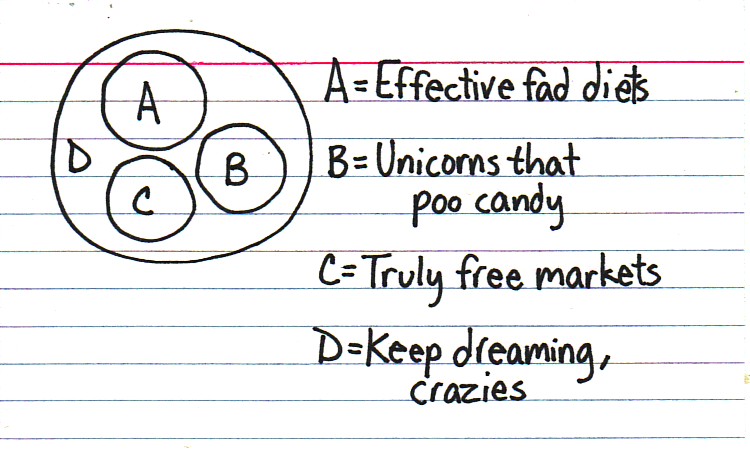 A
D
B
C
A=Effective fad diets
B=Unicorns that
poo candy
C=Truly free markets
D=Keep dreaming,
crazies